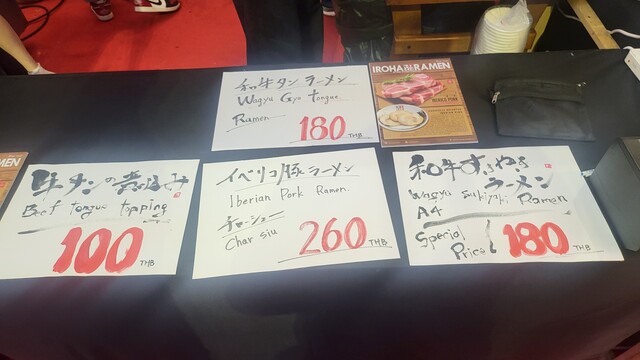 和牛タン ラーメン
Wagyu Gyu tongue
Ramen
180 THB
IROHA RAMEN
MEN
牛タンの煮込み
Beef tongue topping
100 THB
イベリコ豚ラーメン
Iberian Pork Ramen
チャーシュー
Char siu
260 THB
和牛すきやき
ラーメン
Wagyu Sukiyaki Ramen
A4
Special
Price
180 THB